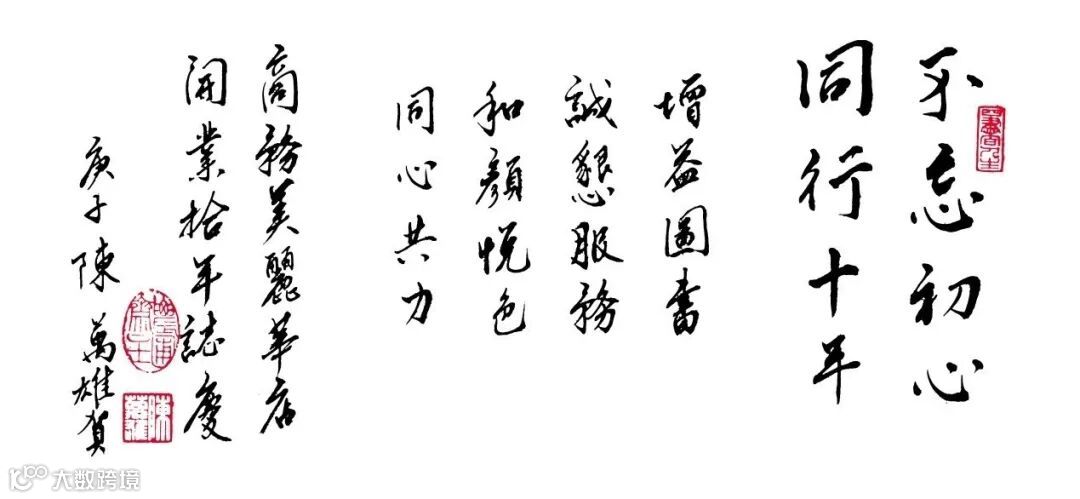 不忘初心
同行十年
增益圖書
誠懇服務
和顏悅色
同心共力
商務美麗華店
開業拾年誌慶
庚子陳萬雄賀
陳萬雄
大数跨境